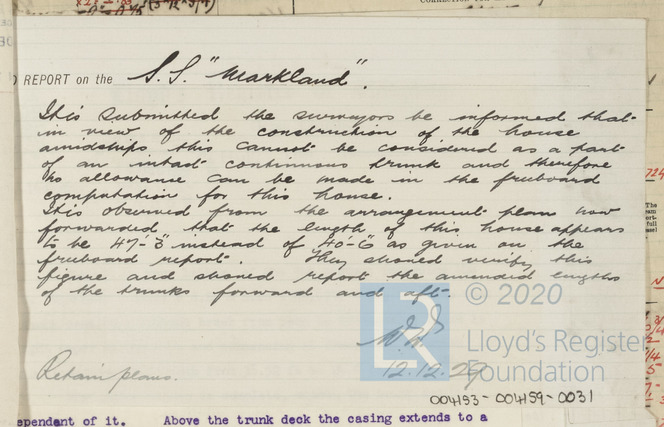 REPORT on the S.S. "Markland".
It is submitted the surveyors be informed that
in view of the construction of the house
amidships this cannot be considered as a part
of an intact continuous trunk and therefore
no allowance can be made in the freeboard
computation for this house.
It is observed from the arrangement plan now
forwarded that the length of this house appears
to be 47-3" instead of 40-6" as given on the
freeboard report. They should verify this
figure and should report the amended lengths
of the trunks forward and aft.
12.12.29
Retain plans.
LR
© 2020
Lloyd's Register
Foundation
004193-004159-0031
ependant of it. Above the trunk deck the casing extends to a
724
The